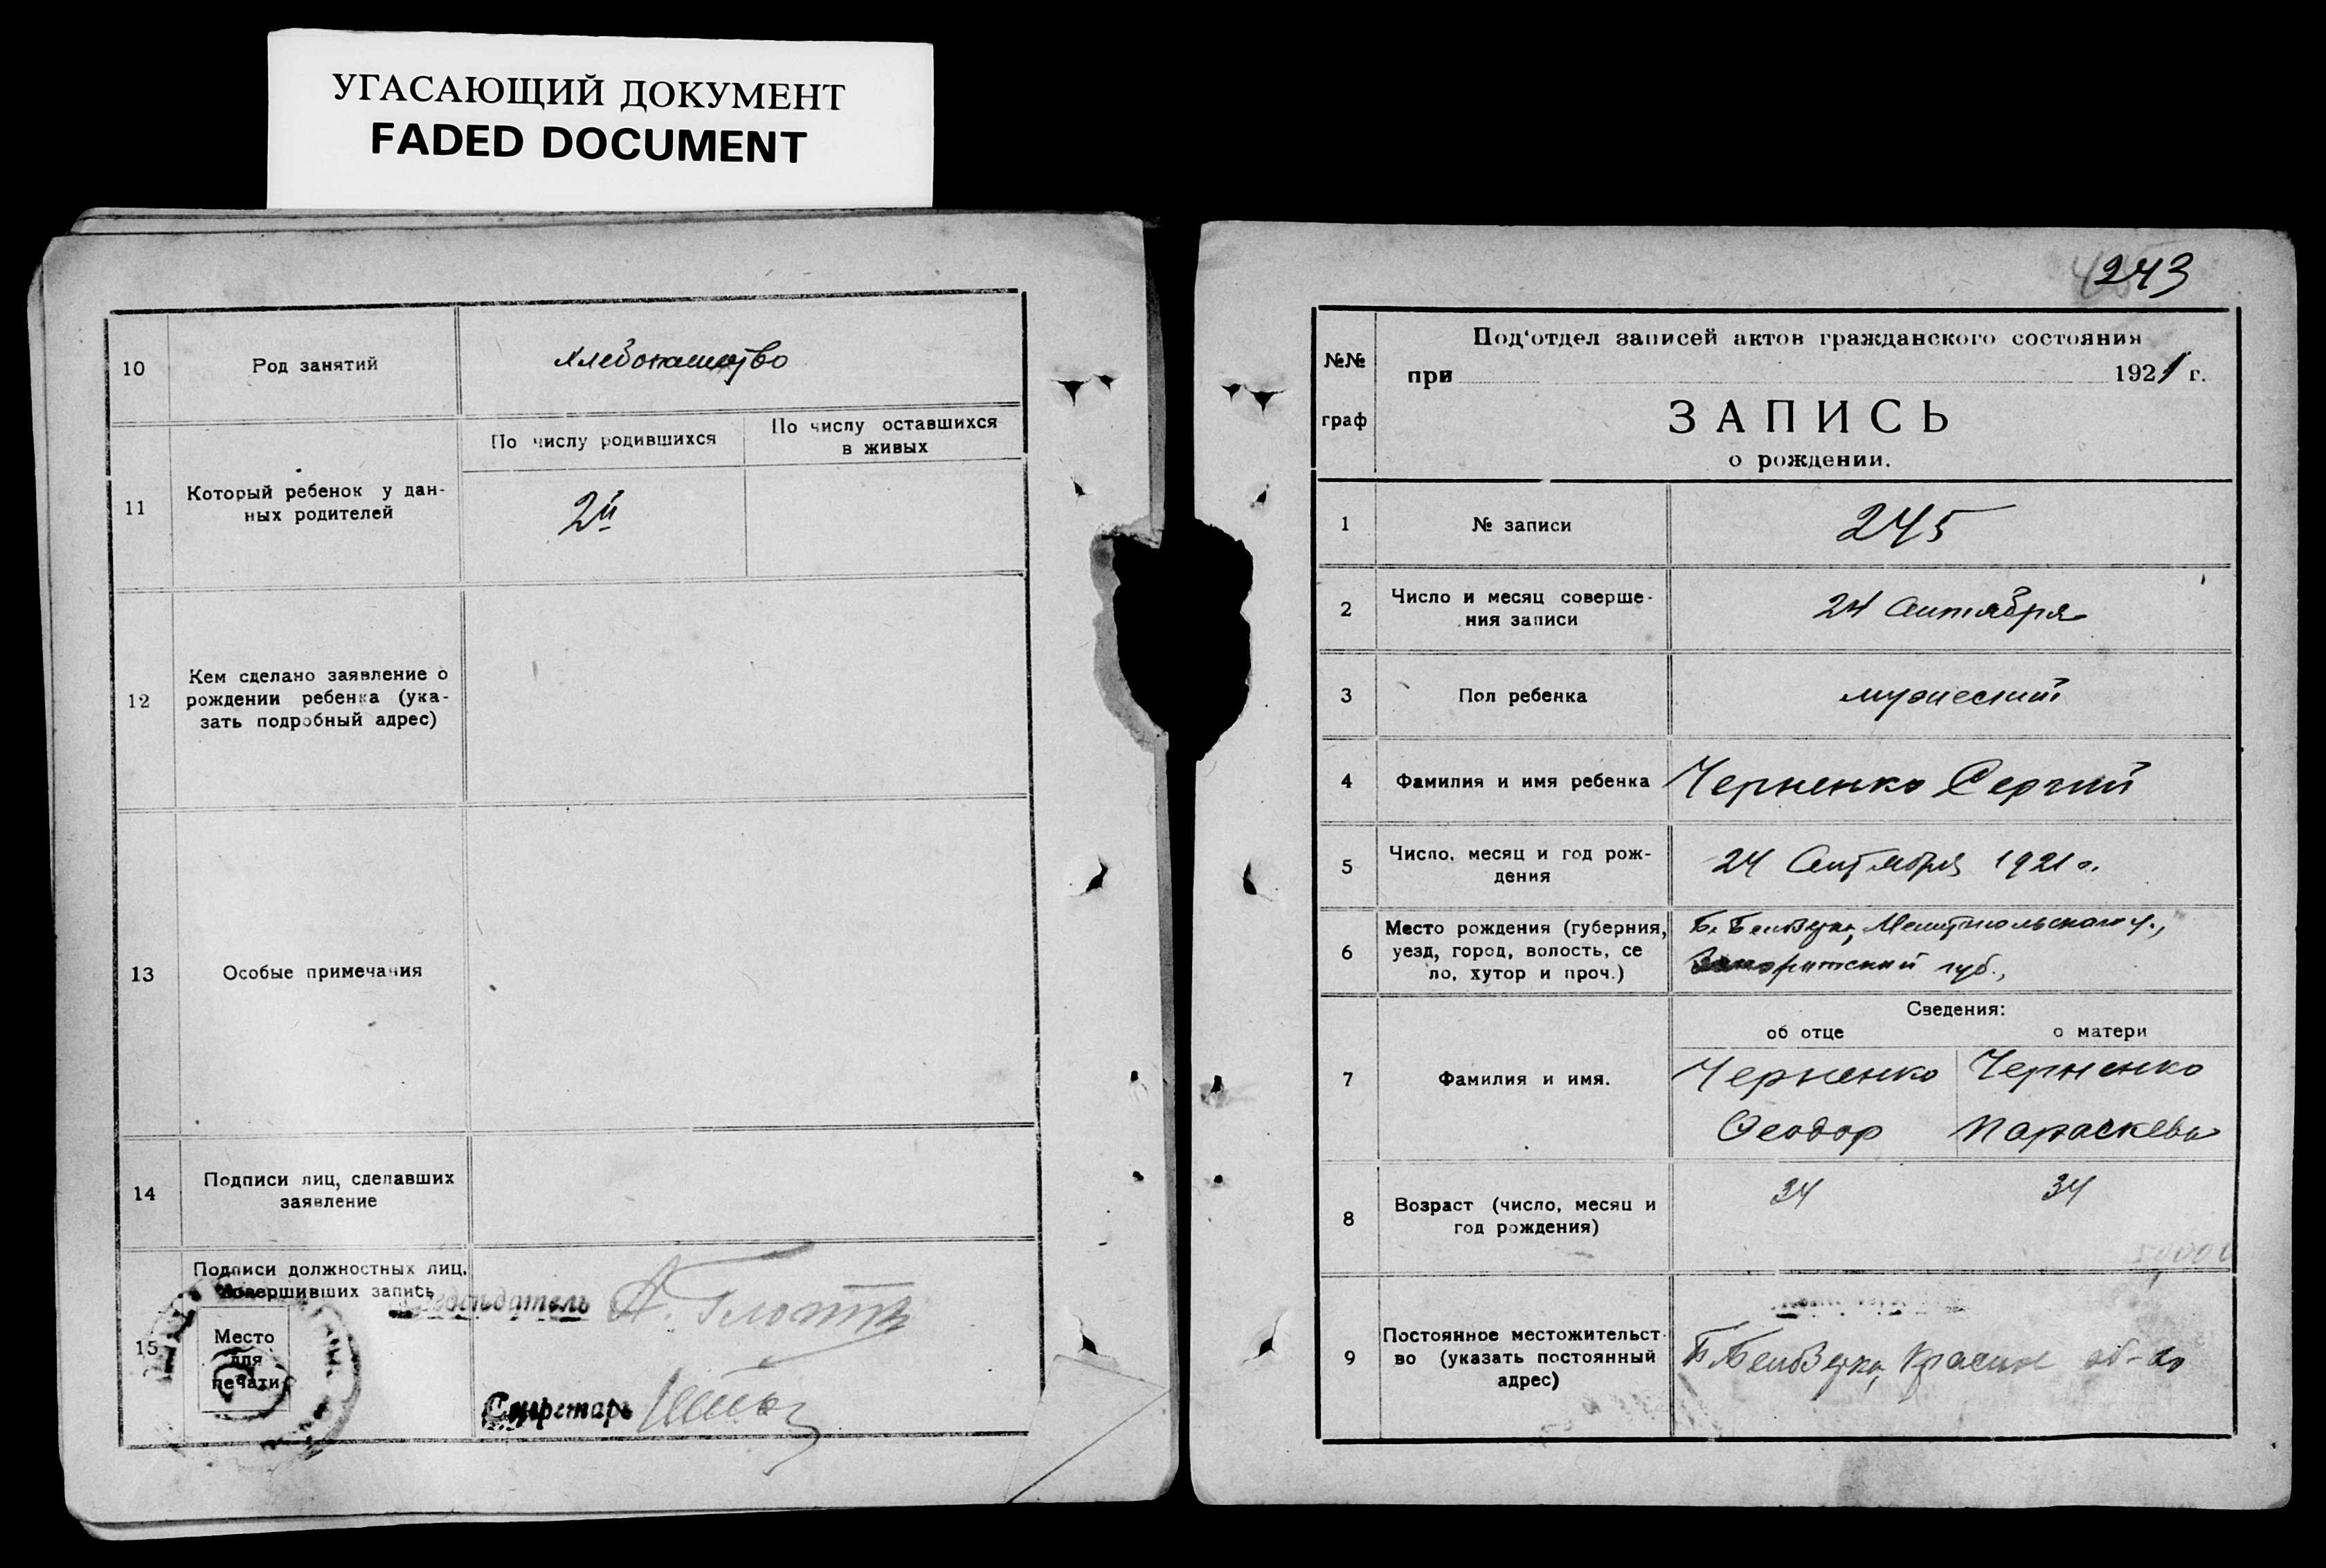 УГАСАЮЩИЙ ДОКУМЕНТ
FADED DOCUMENT
10
Род занятий
Хлебопашество
11
Который ребенок у дан-
ных родителей
По числу родившихся
По числу оставшихся
в живых
2й
12
Кем сделано заявление о
рождении ребенка (ука-
зать подробный адрес)
13
Особые примечания
14
Подписи лиц, сделавших
заявление
15
Подписи должностных лиц,
совершивших запись
Место
для
печати
Председатель
Секретарь
243
№№
граф
Под'отдел записей актов гражданского состояния
при 1921 г.
ЗАПИСЬ
о рождении.
1
№ записи
245
2
Число и месяц соверше-
ния записи
24 Сентября
3
Пол ребенка
мужеский
4
Фамилия и имя ребенка
Черненко Сергий
5
Число, месяц и год рож-
дения
24 Сентября 1921 г.
6
Место рождения (губерния,
уезд, город, волость, се
ло, хутор и проч.)
Б. Белозерка, Мелитопольского у.,
губ.,
Сведения:
об отце
о матери
7
Фамилия и имя.
Черненко
Феодор
Черненко
Параскева
8
Возраст (число, месяц и
год рождения)
34
34
9
Постоянное местожительст-
во (указать постоянный
адрес)
Б. Белозерка, об-во